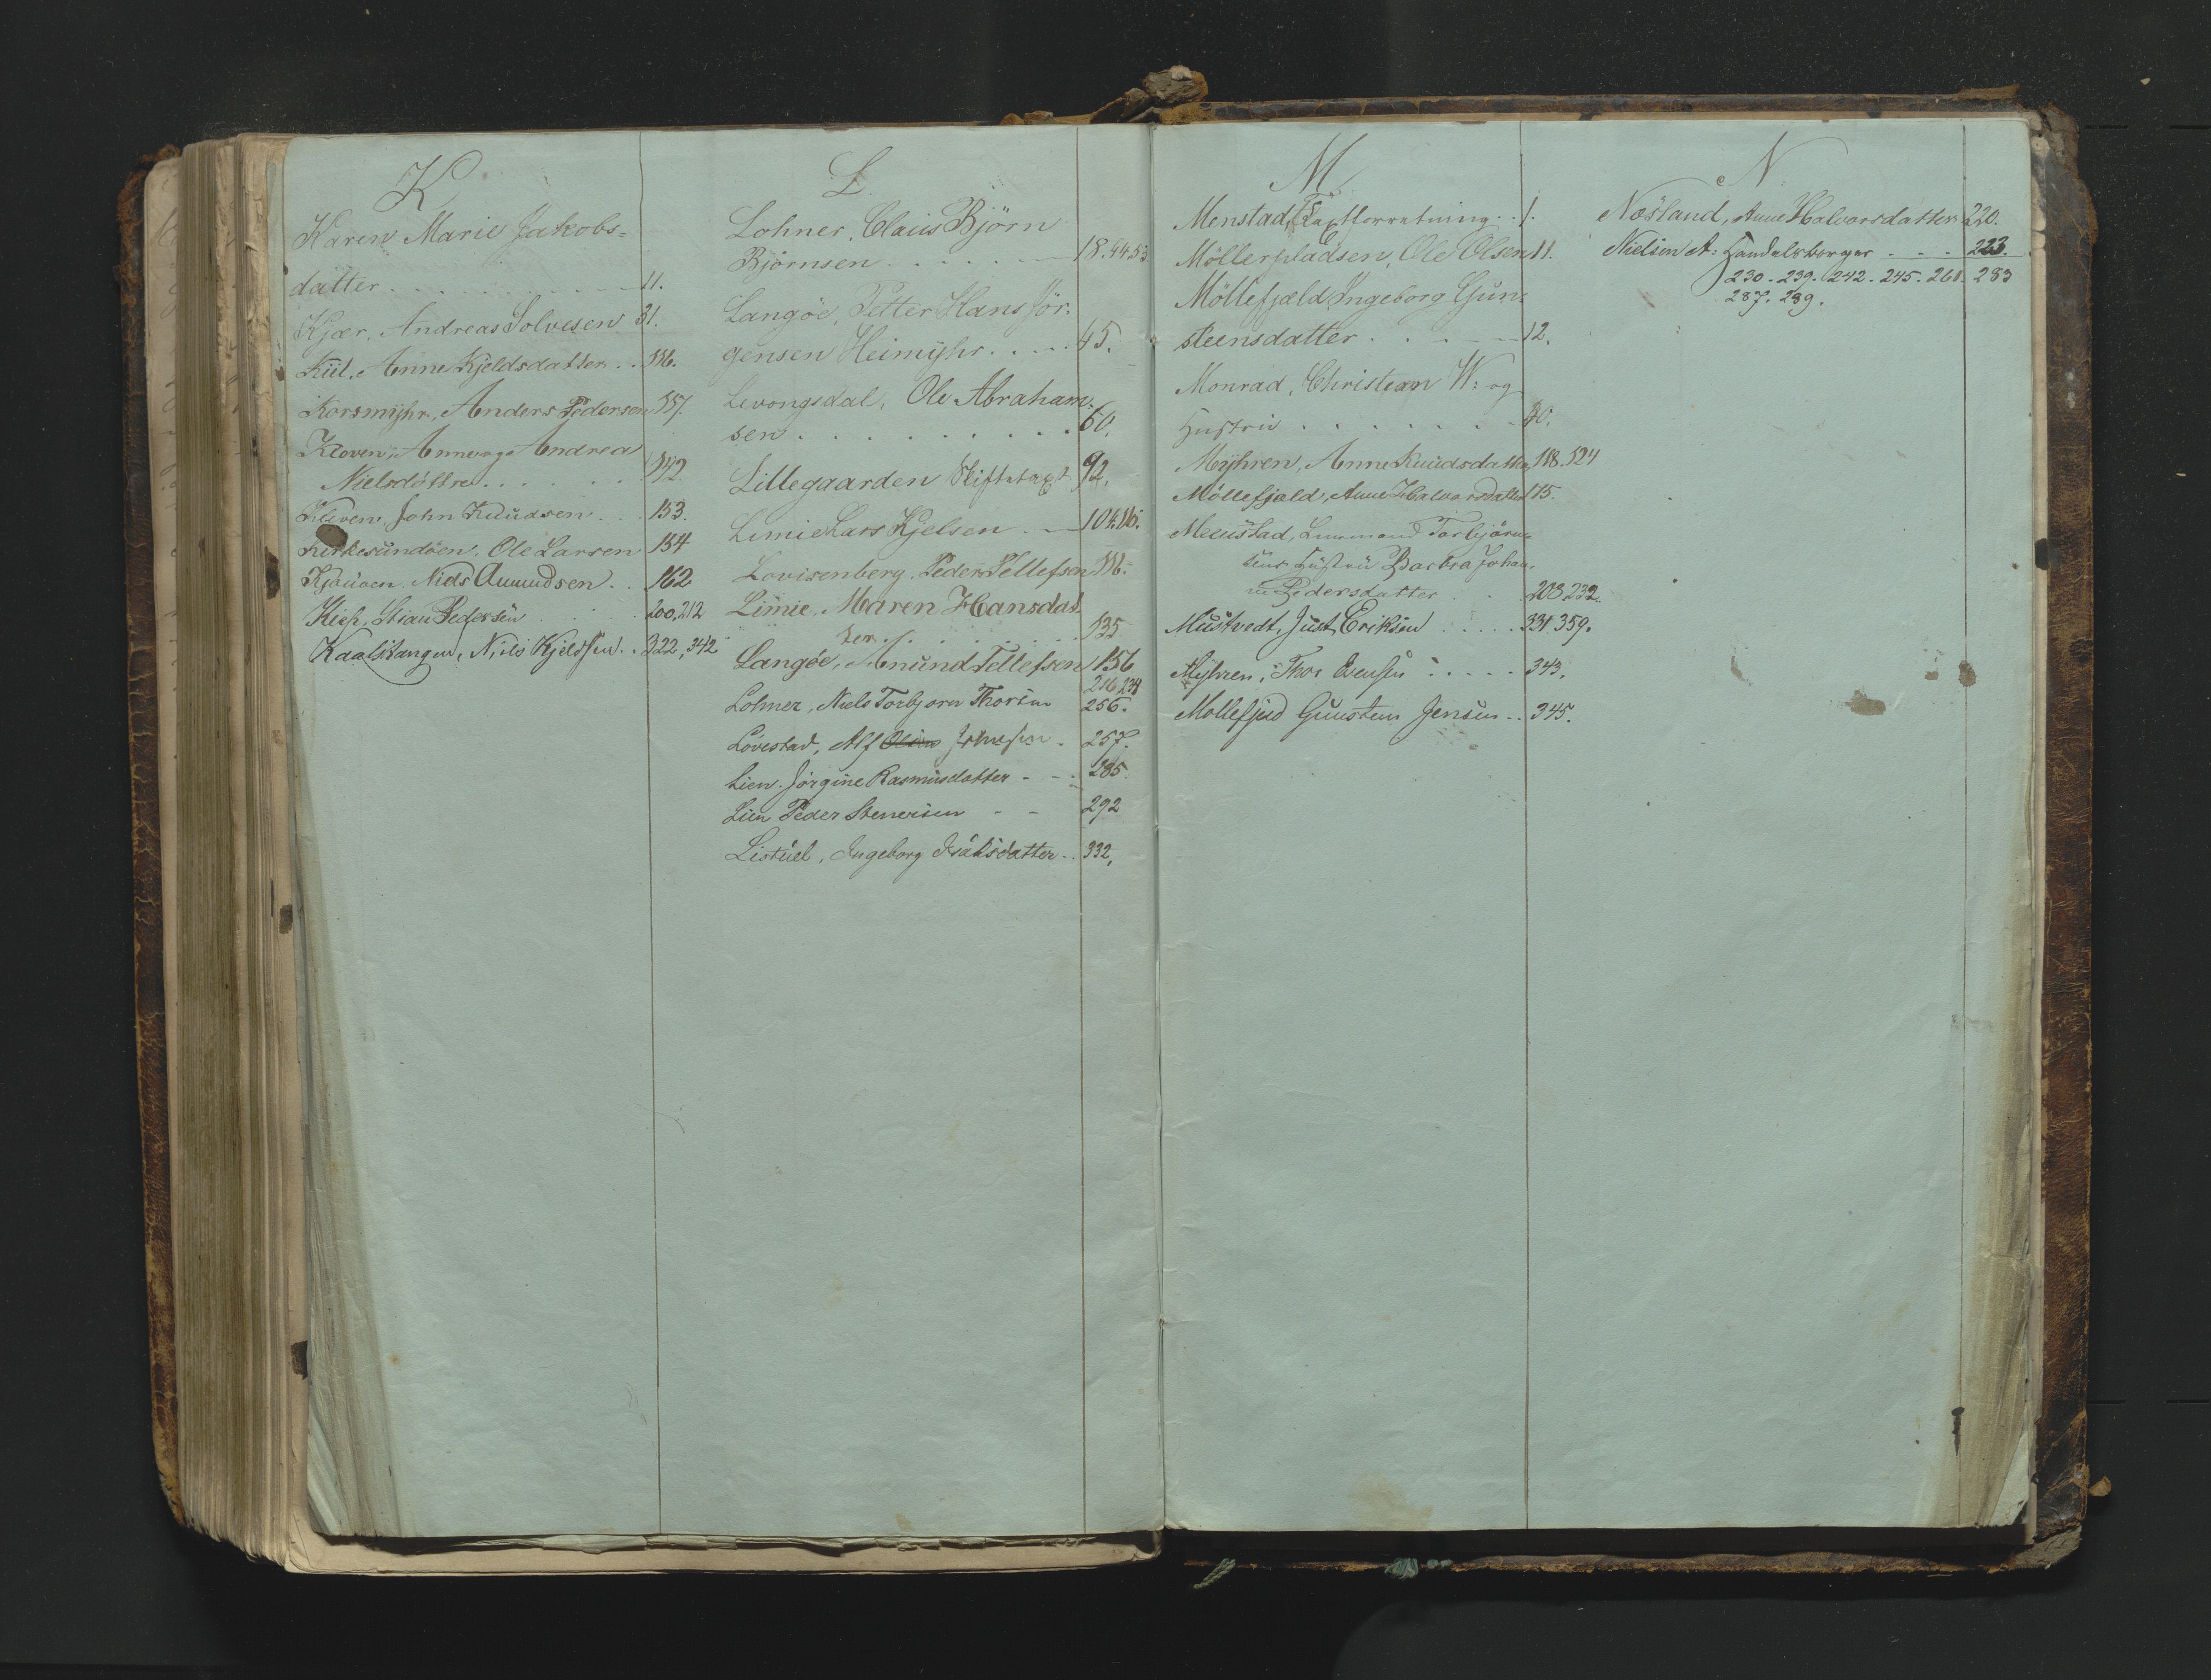 K
Karen Marie Jakobs-
datter . . . . . . . . 11.
Kjær, Andreas Solvesen 31.
Kiil, Anne Kjeldsdatter . . 116.
Korsmyhr, Anders Pedersen 137.
Kloven, Anne og Andrea
Nielsdöttre . . . . . 142
Kleven John Knudsen . . . 153.
Kirkesundöen, Ole Larsen 154
Nids Aumundsen . . 162
Stian Pedersen . . . 200.212
Kaalstangen, Niels Kjeldsen . . 322, 342
L
Lohner, Claus Björn
Björnsen . . . . . . 18.44.53
Langöe, Petter Hans Jör-
gensen Heimyhr . . . . 45.
Levongsdal, Ole Abraham-
sen . . . . . . . . . 60.
Lillegaarden Skiftetaxt 92.
Limie Lars Kjelsen . . 104.116.
Lovisenberg, Peder Tellefsen 116.
Limie, Maren Hansdat
ter . . . . . . . 135
Langöe, Amund Tellefsen 156
216 234
Lohner, Niels Torbjorn Thorsen 256.
Lövestad, Alf Olsen Johnsen . 257.
Lien. Jörgine Rasmusdatter - - . 285.
Lien Peder Stenersen - - 292
Listuel, Ingeborg Isaksdatter . . 332,
M
Menstad, Taxtforretning . . 1.
Möllerpladsen, Ole Olsen 11.
Möllefjæld, Ingeborg Gun-
steensdatter . . . . . 12.
Monrad, Christian W: og
Hustru . . . . . . . 40.
Myhren, Anne Knudsdatter 118.124
Möllefjæld, Anne Halvorsdatter 175.
Menstad, Lensmand Torbjörn-
sens Hustru Barbra Johan-
ne Pedersdatter . . 203.232.
Mustvedt, Just Eriksen . . . . . 331.359.
Myhren, Thor Evensen . . . . . 343.
Mollefjeld Gunsten Jensen . . 345.
N
Næsland, Anne Halvorsdatter 220.
Nielsen A: Handelsborger . . . 223.
230. 239. 242. 245. 261. 283
287. 289.